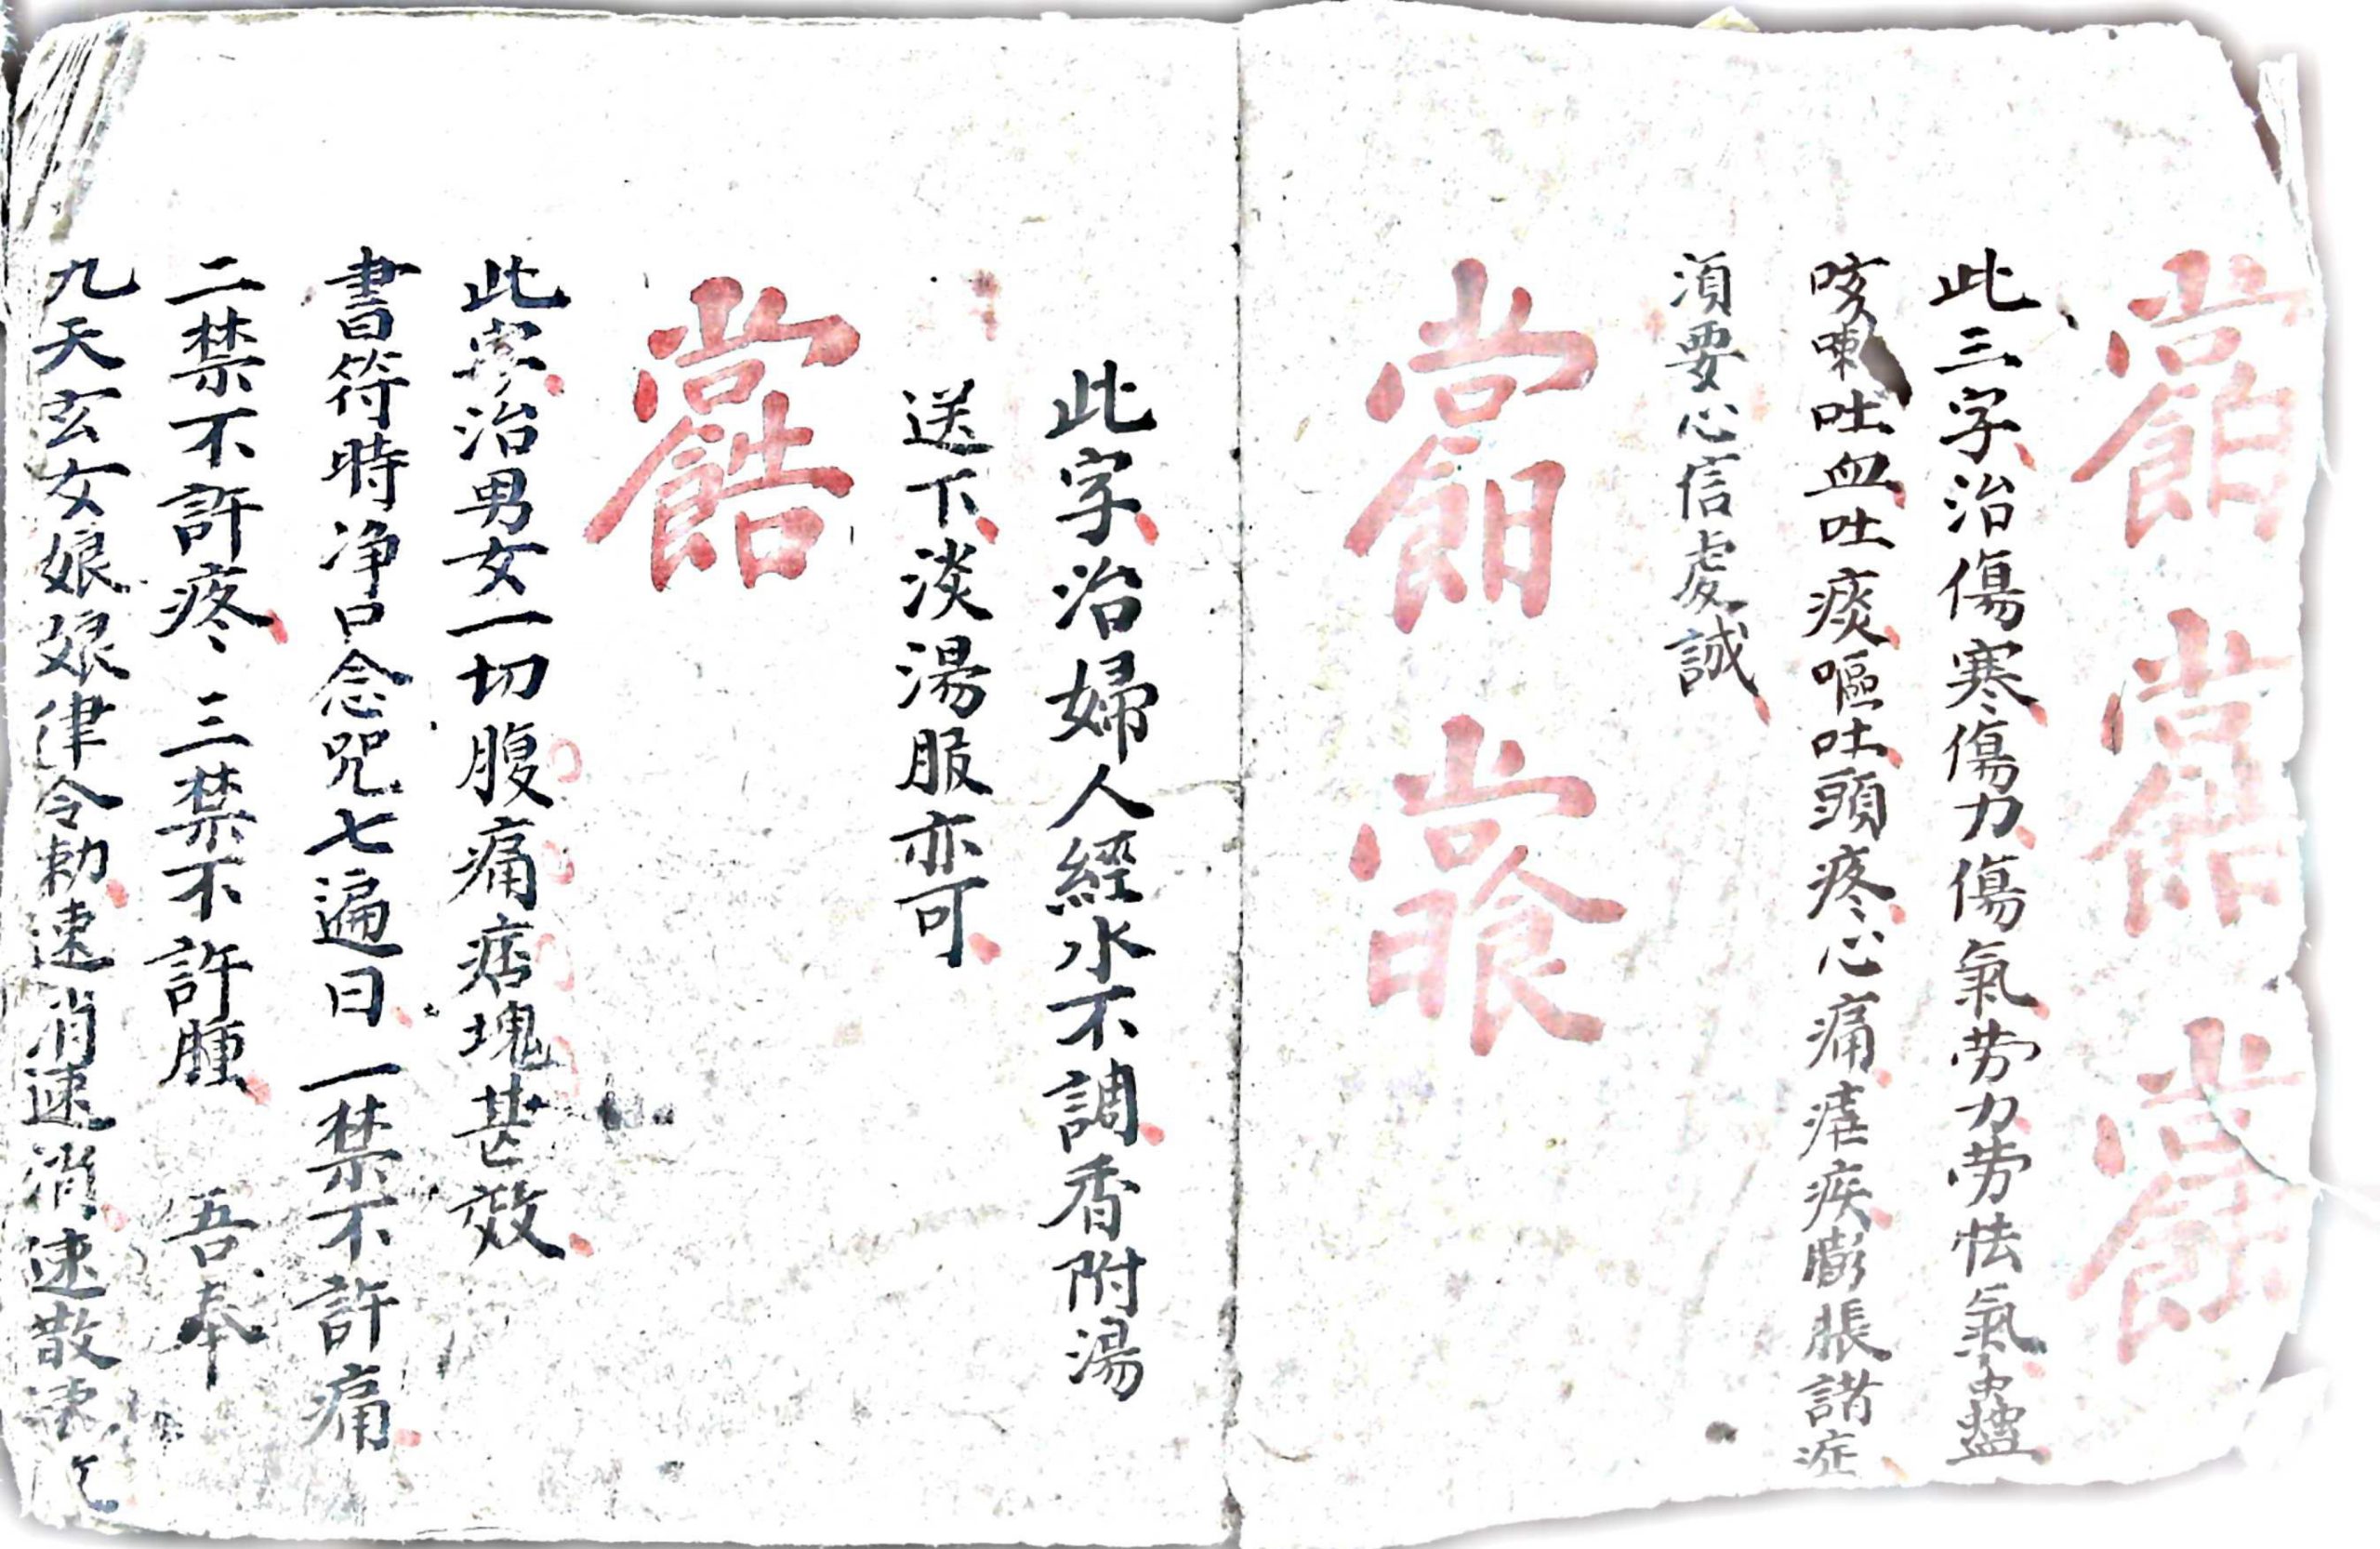 此三字治傷寒傷力傷氣劳力劳怯氣蠱
咳嗽吐血吐痰嘔吐頭疼心痛瘧疾膨脹諸症
須要心信虔誠
此字治婦人經水不調香附湯
送下淡湯服亦可
此字治男女一切腹痛痞塊甚效
書符時净口念咒七遍曰一禁不許痛
二禁不許疼三禁不許腫 吾奉
九天玄女娘娘律令勅速消速消速散速